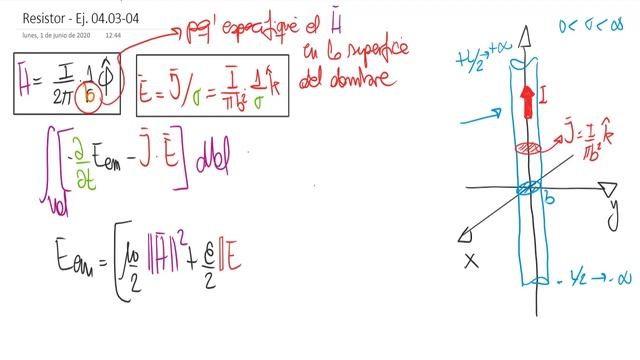 Resistor - Ej. 04.03-04
lunes, 1 de junio de 2020 12:44
pq' especifique el H̄
en la superficie
del alambre
H̄ = I/2π · 1/b φ̂
Ē = J̄/σ = I/πb² · 1/σ k̂
∫vol [-∂/∂t Eem - J̄ · Ē] dVol
Eem = [μ0/2 ||H̄||² + ε/2 ||E
0 < σ < ∞
+L/2 → +∞
I
J̄ = I/πb² k̂
b
y
x
-L/2 → -∞